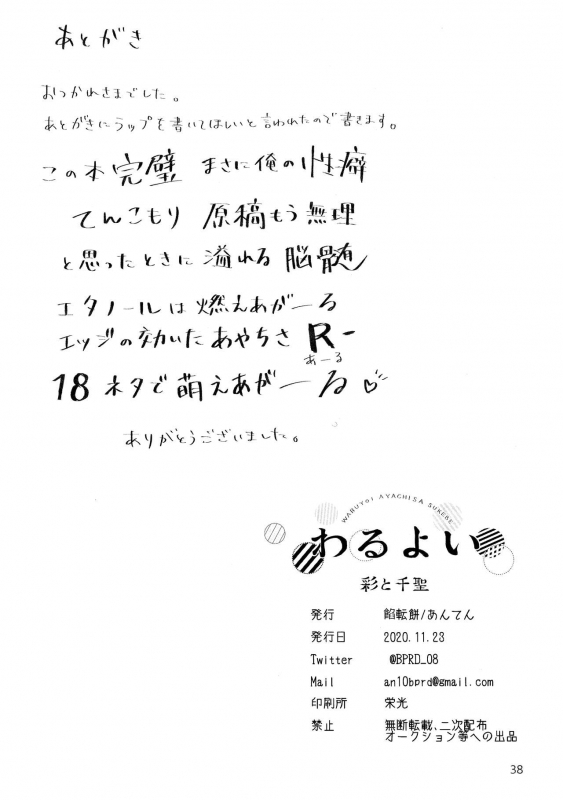 あとがき
おつかれさまでした。
あとがきにラップを書いてほしいと言われたので書きます。
この本完璧 まさに俺の性癖
てんこもり 原稿もう無理
と思ったときに溢れる脳髄
エタノールは燃えあがーる
エッジの効いたあやちさ R-
あーる
18 ネタで萌えあがーる♡
ありがとうございました。
WARUYOI AYACHISA SUKEBE...
わるよい
彩と千聖
発行 餡転餅/あんてん
発行日 2020.11.23
Twitter @BPRD_08
Mail an10bprd@gmail.com
印刷所 栄光
禁止 無断転載、二次配布
オークション等への出品
38